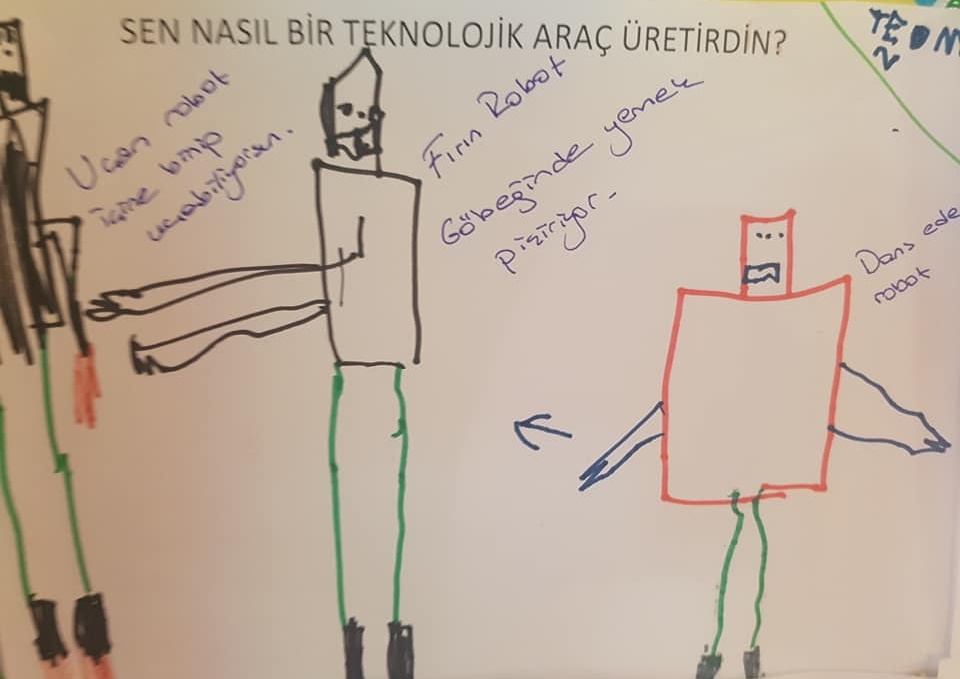 SEN NASIL BİR TEKNOLOJİK ARAÇ ÜRETİRDİN?
Ucan robot
içine binip
ucabiliyorsun.
Fırın Robot
Göbeğinde yemek
pişiriyor.
Dans ede
robot